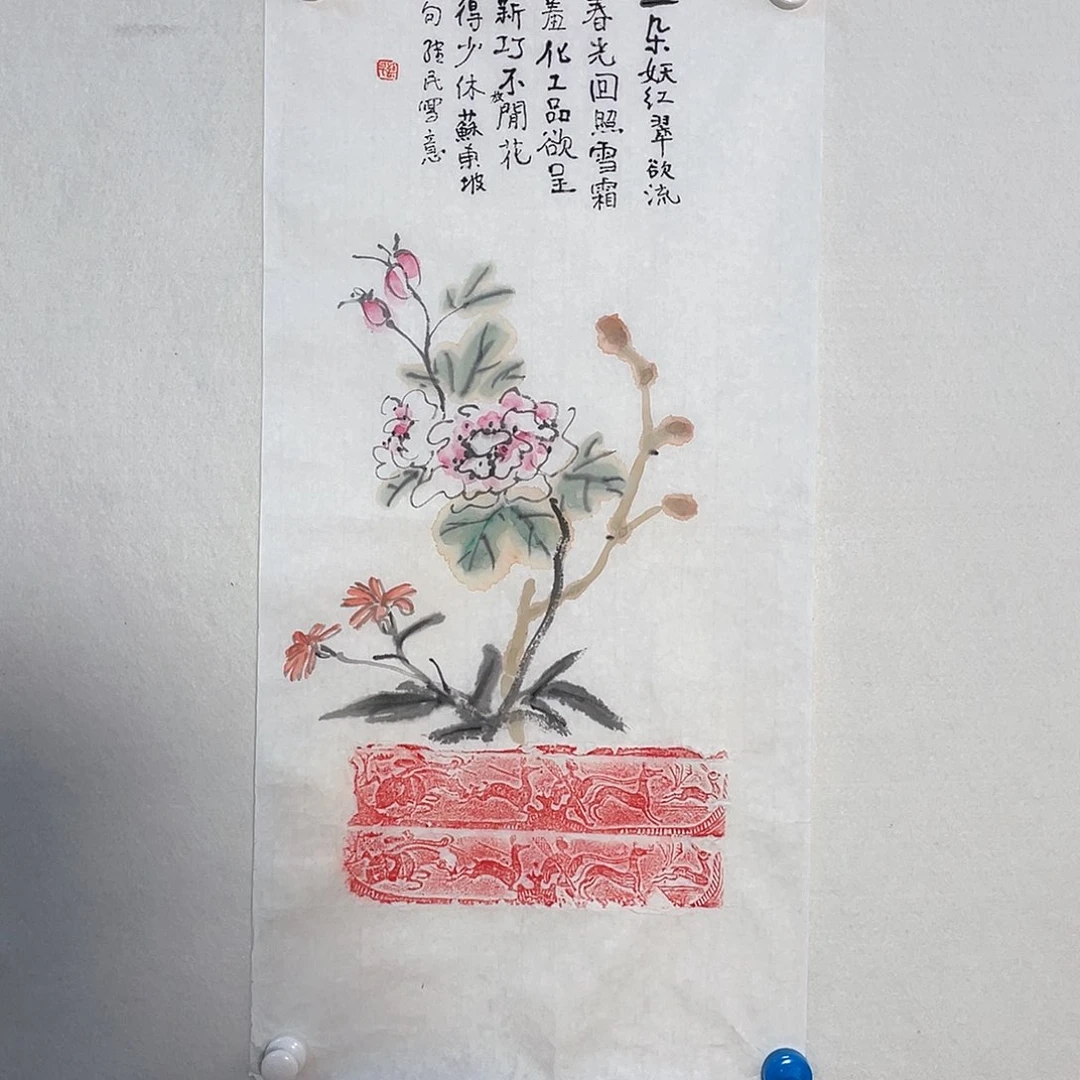 一朵妖紅翠欲流
春光回照雪霜
羞化工品欲呈
新巧不放閒花
得少休蘇東坡
句 民寫意